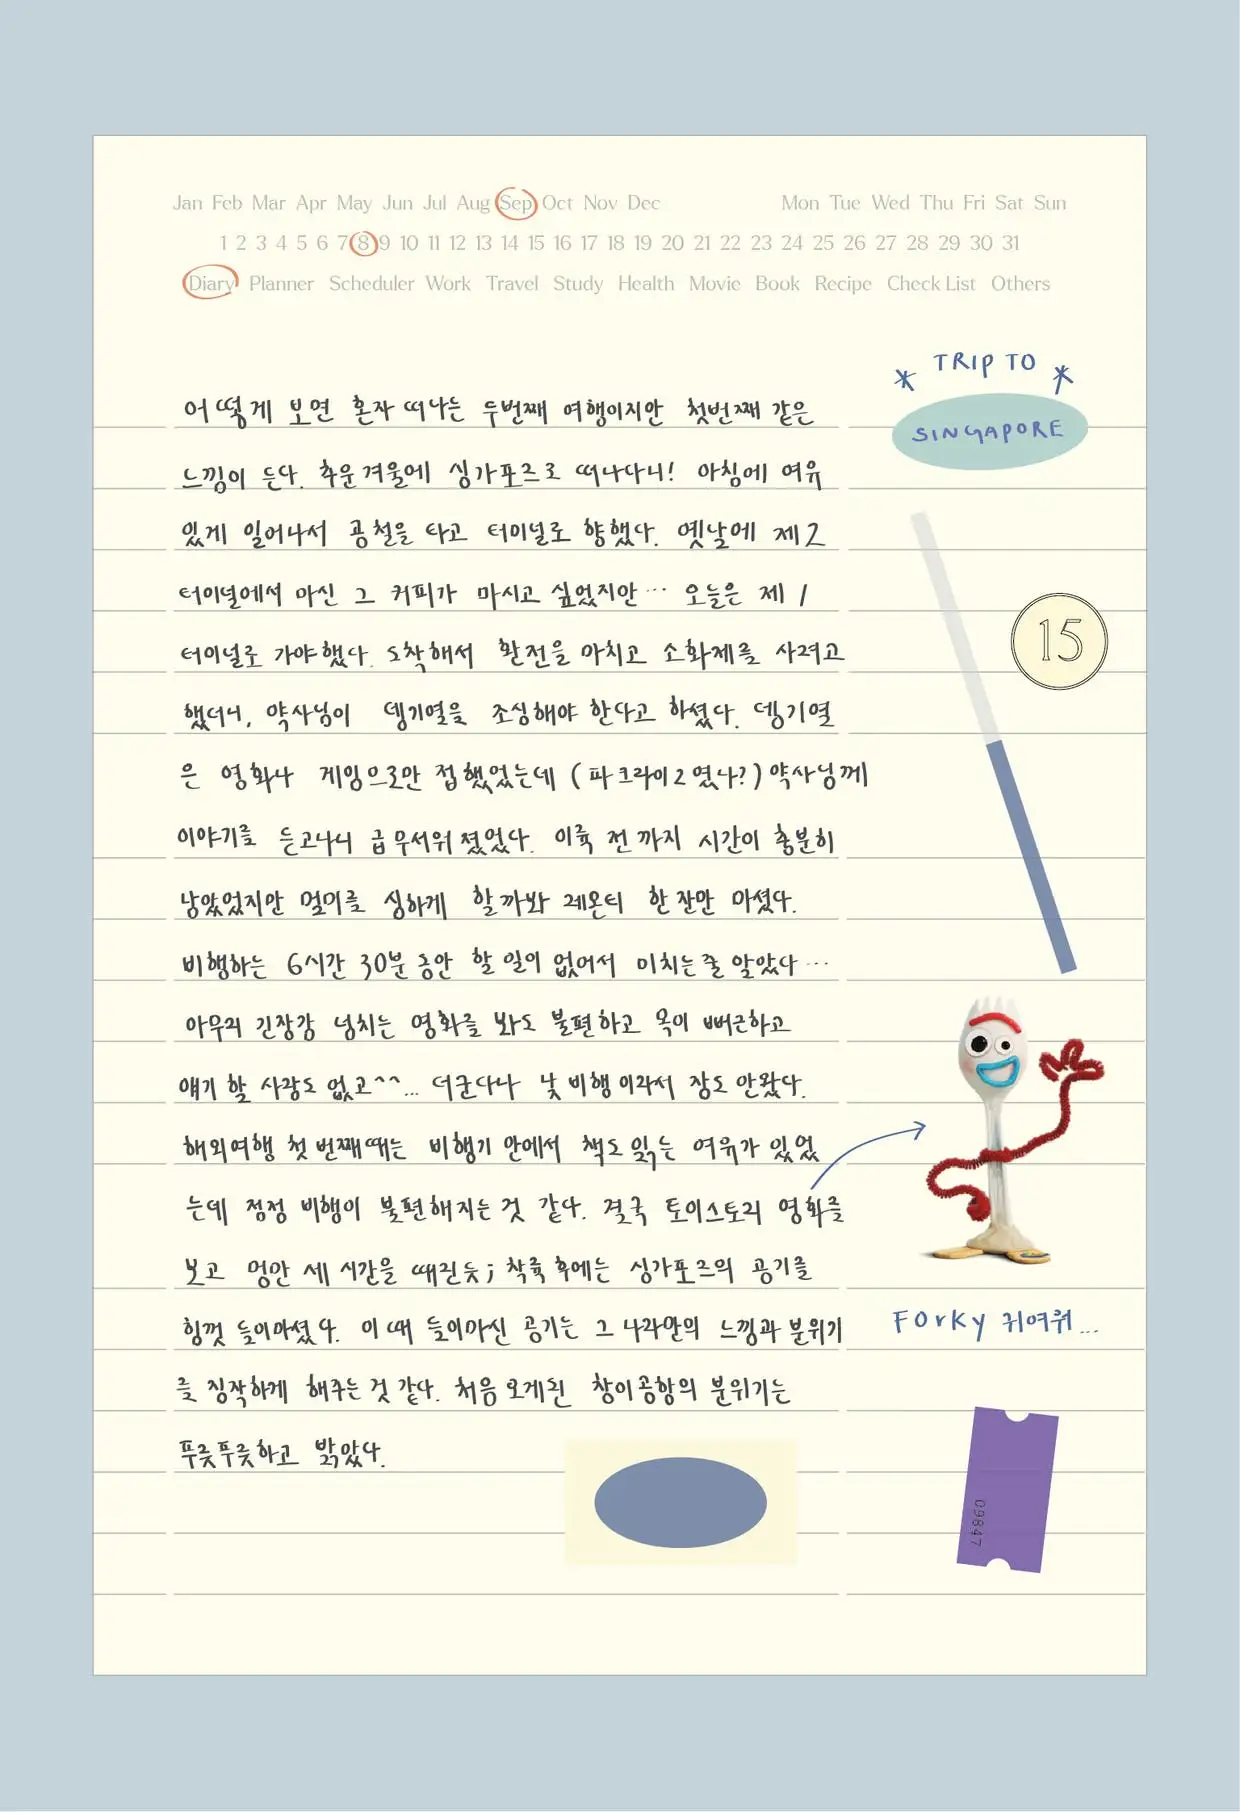 Jan Feb Mar Apr May Jun Jul Aug Sep Oct Nov Dec Mon Tue Wed Thu Fri Sat Sun
1 2 3 4 5 6 7 8 9 10 11 12 13 14 15 16 17 18 19 20 21 22 23 24 25 26 27 28 29 30 31
Diary Planner Scheduler Work Travel Study Health Movie Book Recipe Check List Others
TRIP TO
SINGAPORE
어떻게 보면 혼자 떠나는 두번째 여행이지만 첫번째 같은
느낌이 든다. 추운 겨울에 싱가포르로 떠나다니! 아침에 여유
있게 일어나서 공철을 타고 터미널로 향했다. 옛날에 제2
터미널에서 마신 그 커피가 마시고 싶었지만… 오늘은 제 1
터미널로 가야했다. 도착해서 환전을 마치고 소화제를 사려고
했더니, 약사님이 뎅기열을 조심해야 한다고 하셨다. 뎅기열
은 영화나 게임으로만 접했었는데 (파크라이2 였나?) 약사님께
이야기를 듣고나니 급 무서워 졌었다. 이륙 전까지 시간이 충분히
남았었지만 멀미를 심하게 할까봐 레몬티 한 잔만 마셨다.
비행하는 6시간 30분 동안 할 일이 없어서 미치는줄 알았다…
아무리 긴장감 넘치는 영화를 봐도 불편하고 목이 뻐근하고
얘기 할 사람도 없고^^... 더군다나 낮 비행이라서 잠도 안왔다.
해외여행 첫 번째때는 비행기 안에서 책도 읽는 여유가 있었
는데 점점 비행이 불편해지는 것 같다. 결국 토이스토리 영화를
보고 멍만 세 시간을 때린듯; 착륙 후에는 싱가포르의 공기를
힘껏 들이마셨다. 이 때 들이마신 공기는 그 나라만의 느낌과 분위기
를 짐작하게 해주는 것 같다. 처음 오게된 창이공항의 분위기는
푸릇푸릇하고 밝았다.
15
Forky 귀여워...
09847